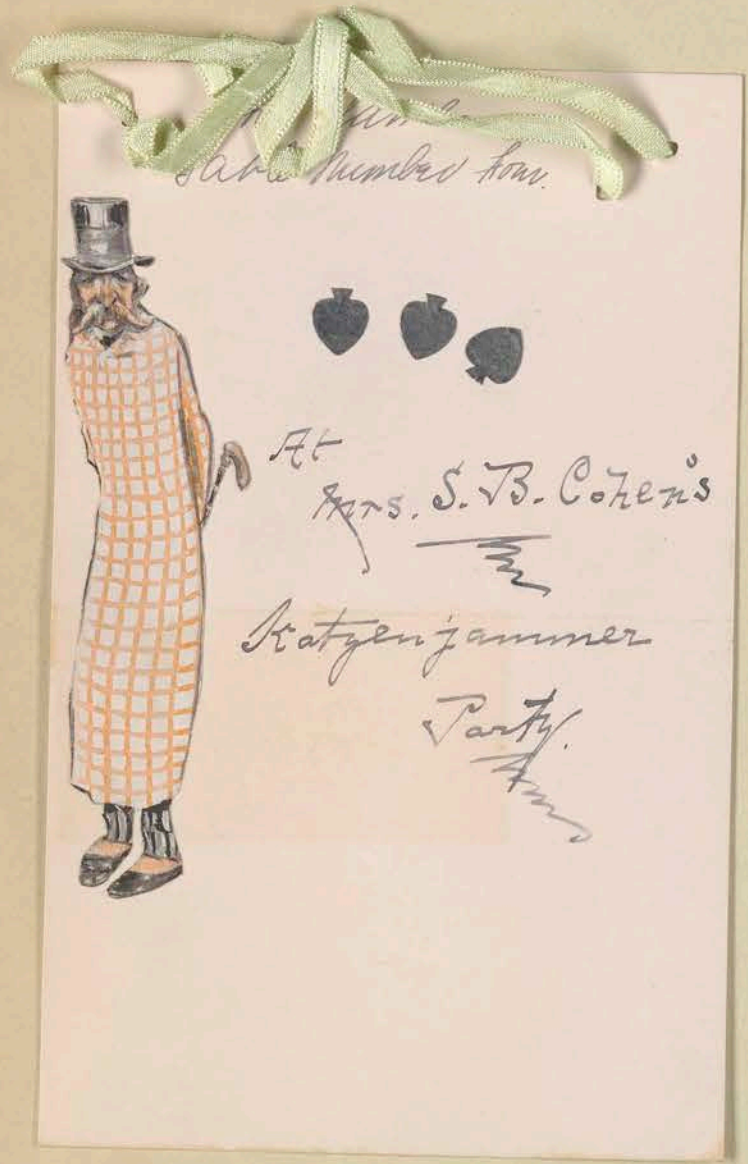 Table Number four.
At
Mrs. S. B. Cohen's
Katzenjammer
Party.